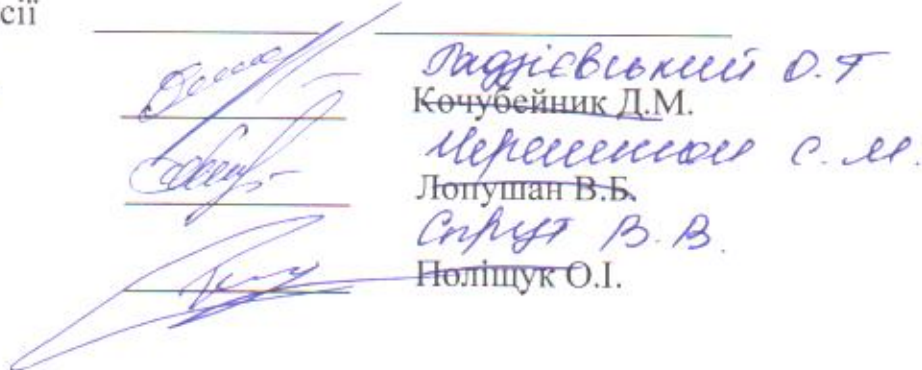 сії
Радзієвський О.Т
Кочубейник Д.М.
С.М.
Лопушан В.Б.
Спрут В.В.
Поліщук О.І.